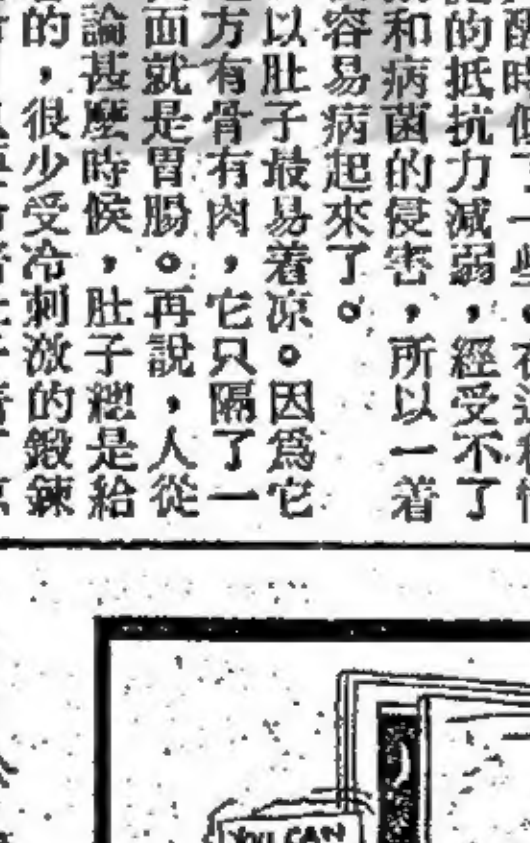 醒時低了一些，在
的抵抗力減弱，經受不了
和病菌的侵害，所以一着
容易病起來了。
以肚子最易着凉。因爲它
方有骨有肉，它只隔了一
面就是胃腸。再說，人從
論甚麼時候，肚子總是給
的，很少受冷刺激的鍛鍊
YOU CAN